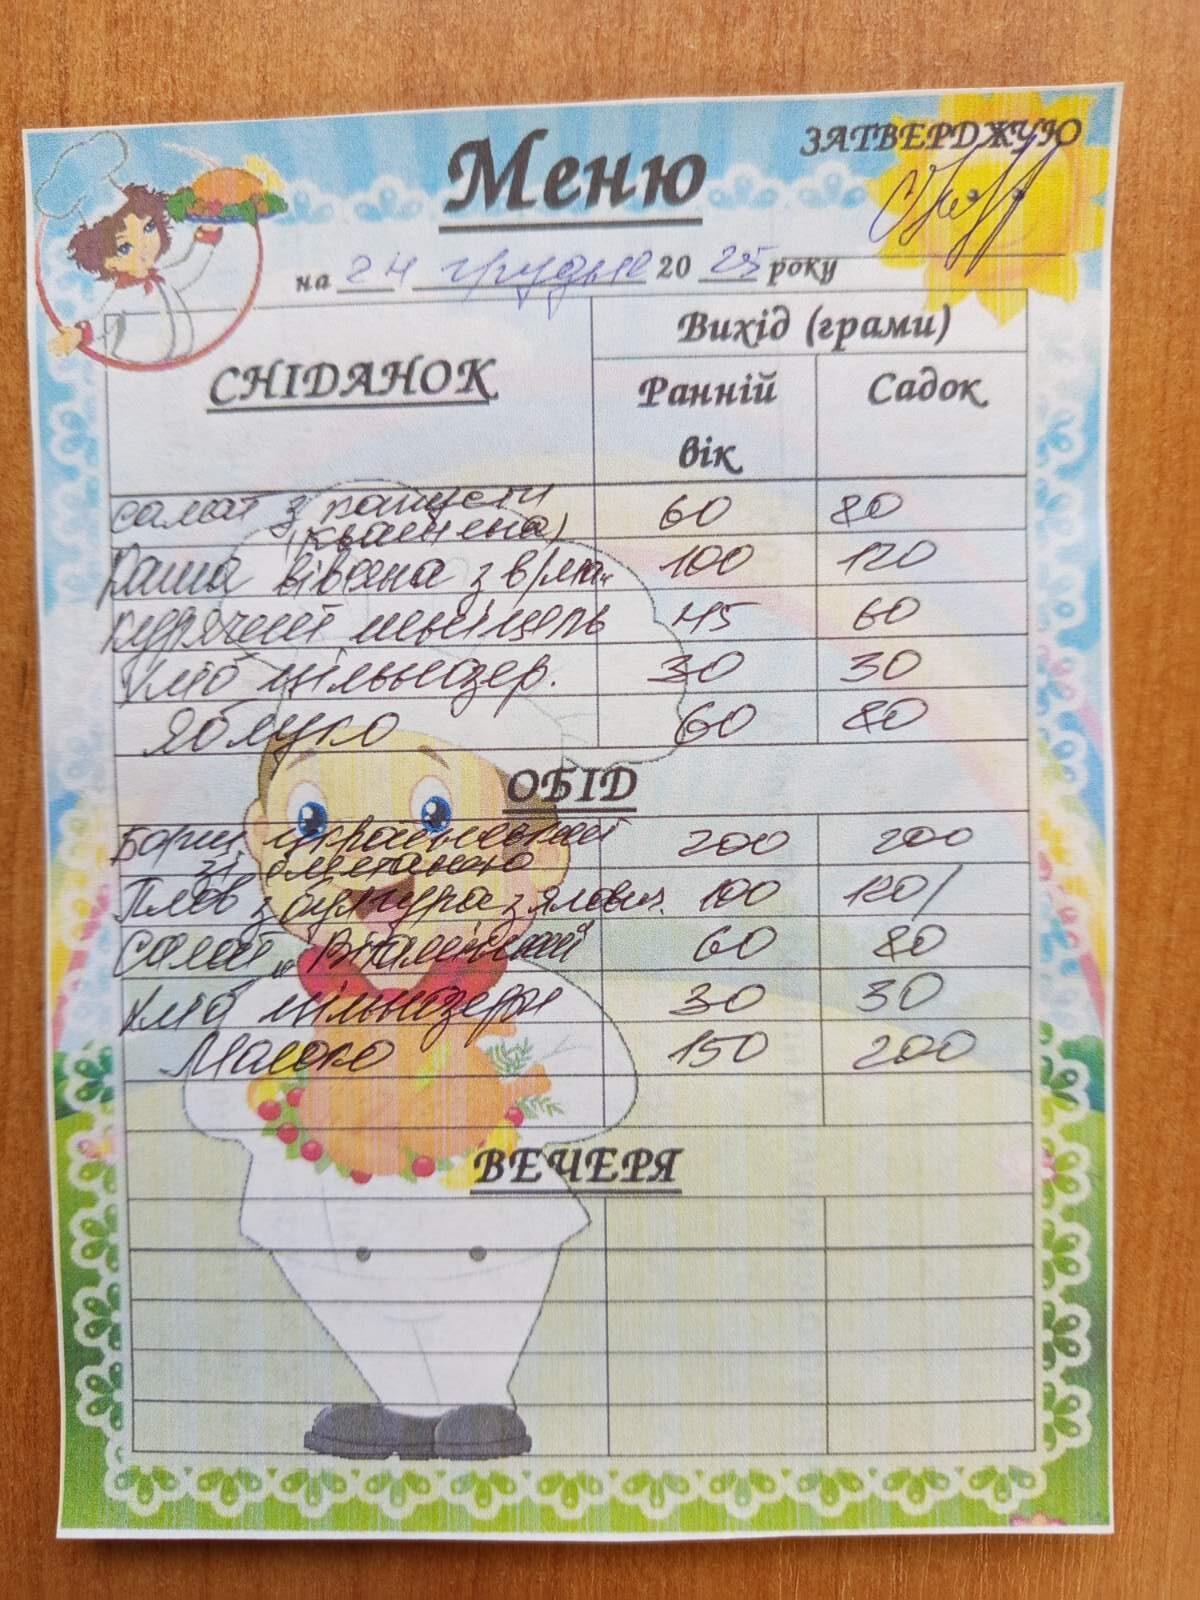 ЗАТВЕРДЖУЮ
Меню
на 24 грудня 2025 року
СНІДАНОК
Вихід (грами)
Ранній вік
Садок
салат з капусти (квашена) 60 80
Каша вівсяна з в/мол 100 120
Курячий шніцель 45 60
Хліб цільнозер. 30 30
Яблуко 60 80
ОБІД
Борщ український зі сметаною 200 200
Плов з булгура з ялович. 100 120/
Салат "Вітамінний" 60 80
Хліб цільнозерн 30 30
Молоко 150 200
ВЕЧЕРЯ